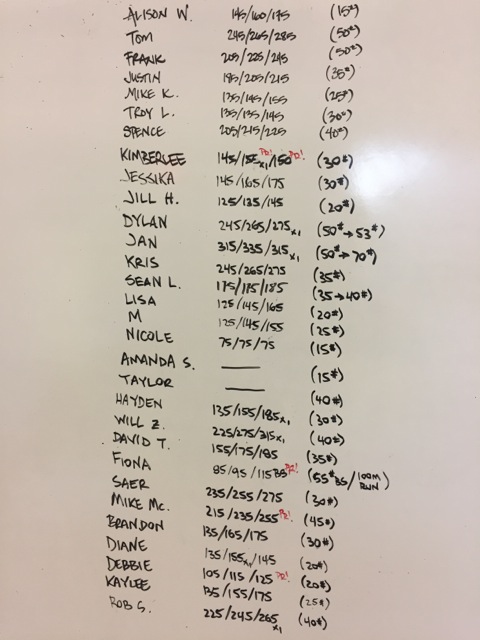 ALISON W. 145/160/175 (15#)
TOM 245/265/285 (50#)
FRANK 205/225/245 (50#)
JUSTIN 195/205/215 (35#)
MIKE K. 135/145/155 (25#)
TROY L. 135/135/145 (30#)
SPENCE 205/215/225 (40#)
KIMBERLEE 145/155x1 PR!/150 PR! (30#)
JESSIKA 145/165/175 (30#)
JILL H. 125/135/145 (20#)
DYLAN 245/265/275x1 (50#→53#)
JAN 315/335/315x1 (50#→70#)
KRIS 245/265/275 (35#)
SEAN L. 175/175/185 (35→40#)
LISA 125/145/165 (20#)
M 125/145/155 (25#)
NICOLE 75/75/75 (15#)
AMANDA S. — (15#)
TAYLOR — (40#)
HAYDEN 135/155/185x1 (30#)
WILL Z. 225/275/315x1 (40#)
DAVID T. 155/175/185 (35#)
FIONA 85/95/115BS PR! (55# BS/100M RUN)
SAER 235/255/275 (30#)
MIKE MC. 215/235/255 PR! (45#)
BRANDON 135/165/175 (30#)
DIANE 135/155x1/145 (20#)
DEBBIE 105/115/125 PR! (20#)
KAYLEE 135/155/175 (25#)
ROB G. 225/245/265x1 (40#)